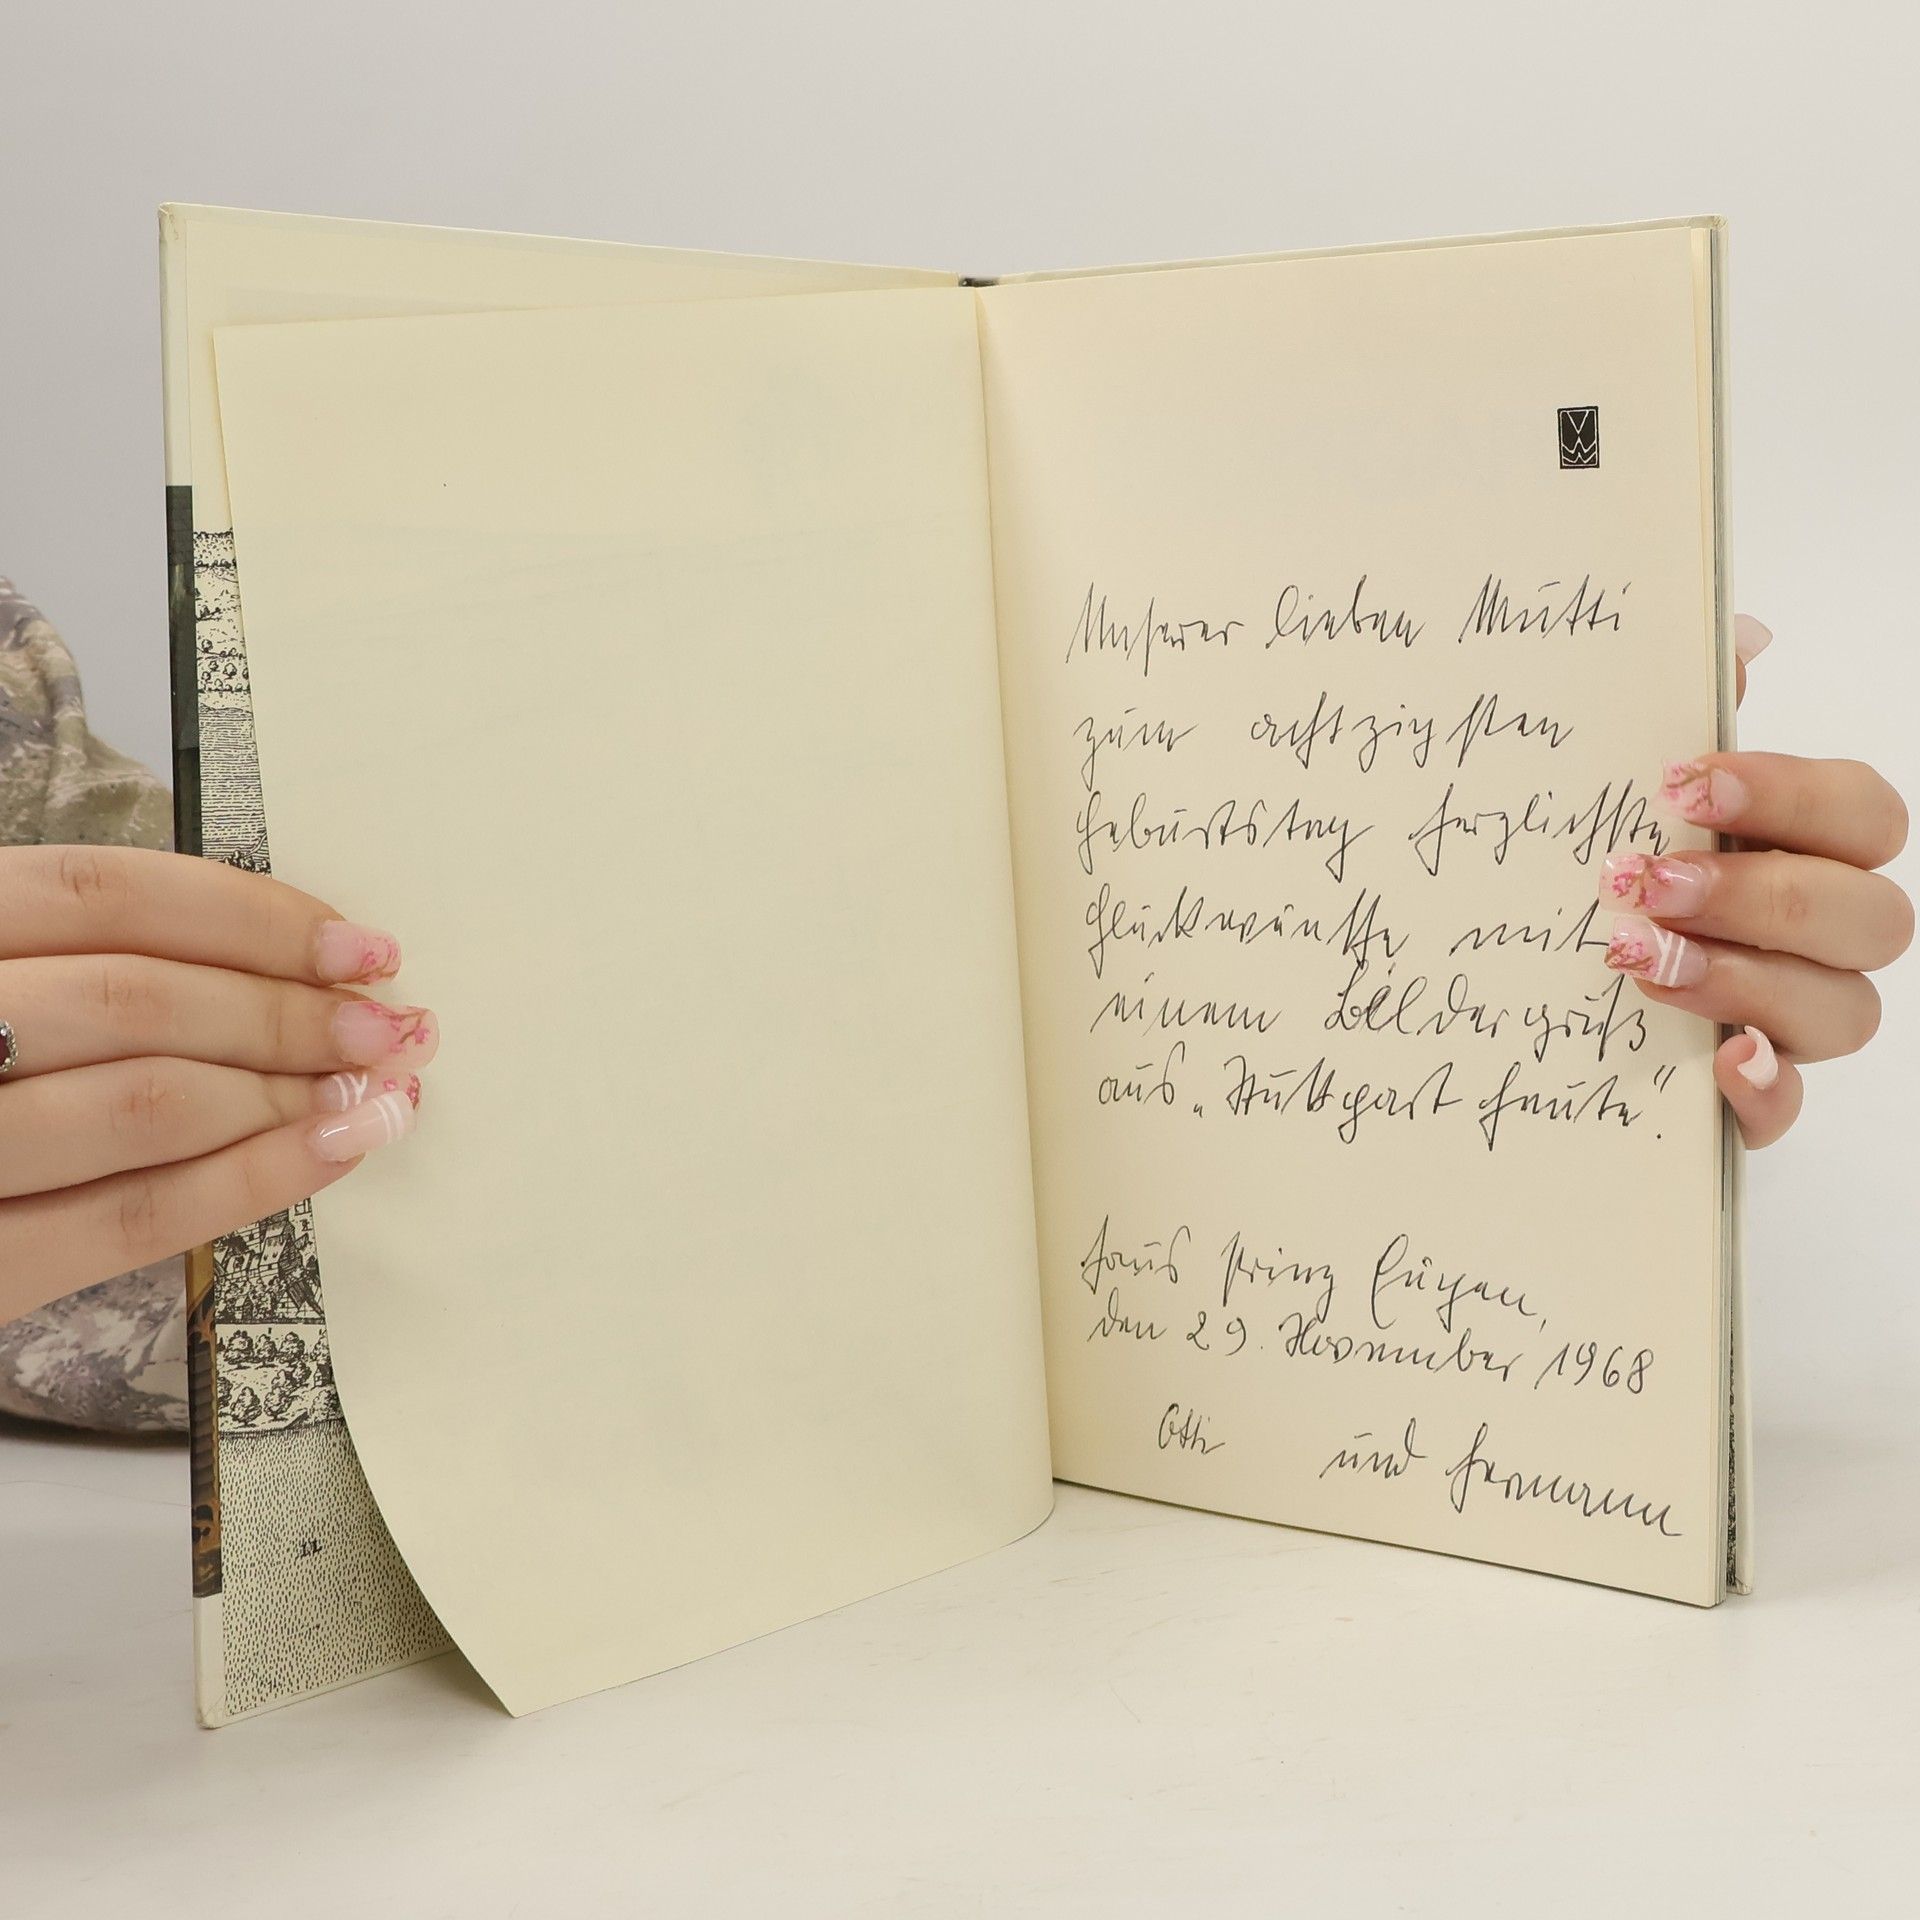 Unserer lieben Mutti
zum achtzigsten
Geburtstag herzlichste
Glückwünsche mit
einem Bildergruß
aus „Stuttgart heute“.
Haus Prinz Eugen,
den 29. November 1968
Otti und Hermann